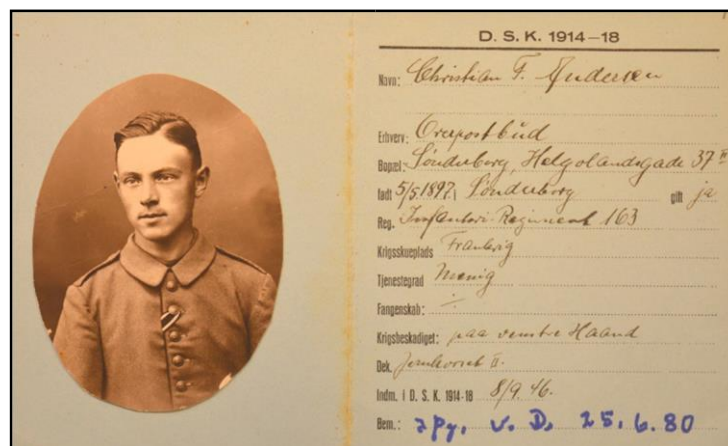 D. S. K. 1914–18
Navn: Christian F. Andersen
Erhverv: Overpostbud
Bopæl: Sønderborg, Helgolandsgade 37 II
født 5/5. 1897. i Sønderborg gift ja
Reg. Infanteri-Regiment 163
Krigsskueplads Frankrig
Tjenestegrad Menig
Fangenskab: ÷
Krigsbeskadiget: paa venstre Haand
Dek. Jernkorset II.
Indm. i D. S. K. 1914-18 8/9. 46.
Bem.: v. D. 25.6.80